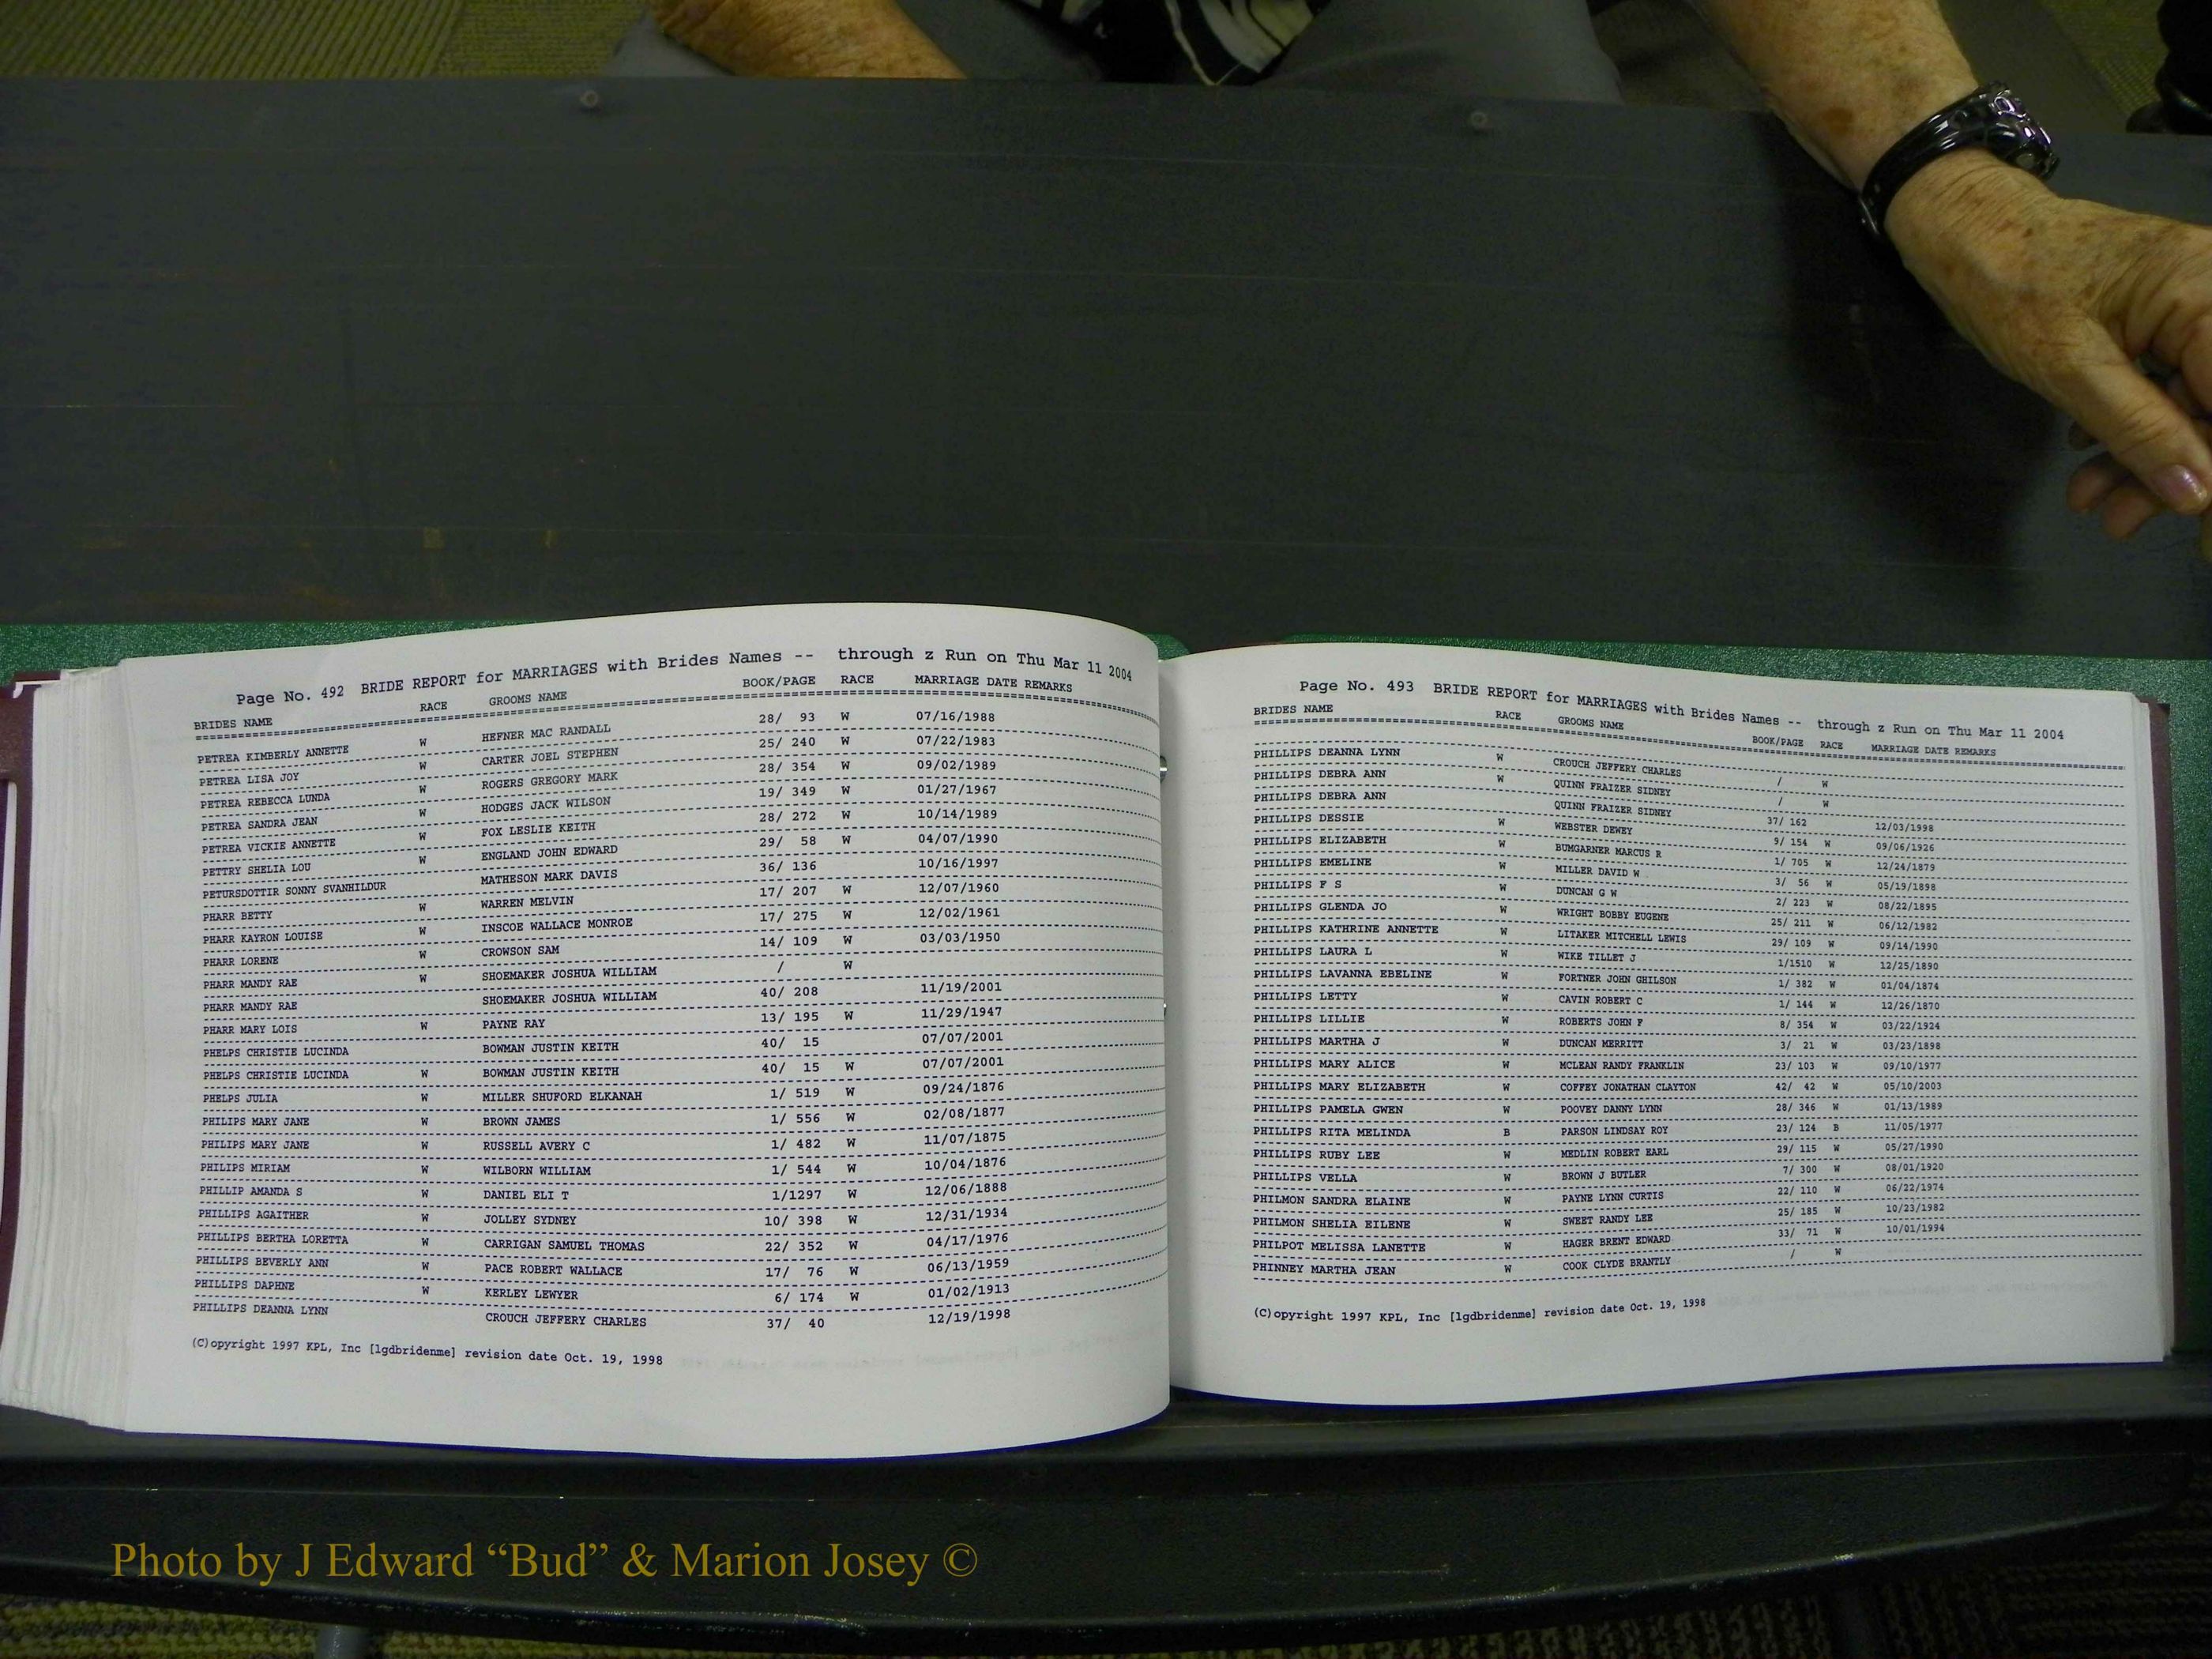 Page No. 492 BRIDE REPORT for MARRIAGES with Brides Names -- through z Run on Thu Mar 11 2004
BRIDES NAME RACE GROOMS NAME BOOK/PAGE RACE MARRIAGE DATE REMARKS
PETREA KIMBERLY ANNETTE W HEFNER MAC RANDALL 28/ 93 W 07/16/1988
PETREA LISA JOY W CARTER JOEL STEPHEN 25/ 240 W 07/22/1983
PETREA REBECCA LUNDA W ROGERS GREGORY MARK 28/ 354 W 09/02/1989
PETREA SANDRA JEAN W HODGES JACK WILSON 19/ 349 W 01/27/1967
PETREA VICKIE ANNETTE W FOX LESLIE KEITH 28/ 272 W 10/14/1989
PETTRY SHELIA LOU W ENGLAND JOHN EDWARD 29/ 58 W 04/07/1990
PETURSDOTTIR SONNY SVANHILDUR MATHESON MARK DAVIS 36/ 136 10/16/1997
PHARR BETTY W WARREN MELVIN 17/ 207 W 12/07/1960
PHARR KAYRON LOUISE W INSCOE WALLACE MONROE 17/ 275 W 12/02/1961
PHARR LORENE W CROWSON SAM 14/ 109 W 03/03/1950
PHARR MANDY RAE W SHOEMAKER JOSHUA WILLIAM / W
PHARR MANDY RAE SHOEMAKER JOSHUA WILLIAM 40/ 208 11/19/2001
PHARR MARY LOIS W PAYNE RAY 13/ 195 W 11/29/1947
PHELPS CHRISTIE LUCINDA BOWMAN JUSTIN KEITH 40/ 15 07/07/2001
PHELPS CHRISTIE LUCINDA W BOWMAN JUSTIN KEITH 40/ 15 W 07/07/2001
PHELPS JULIA W MILLER SHUFORD ELKANAH 1/ 519 W 09/24/1876
PHILIPS MARY JANE W BROWN JAMES 1/ 556 W 02/08/1877
PHILIPS MARY JANE W RUSSELL AVERY C 1/ 482 W 11/07/1875
PHILIPS MIRIAM W WILBORN WILLIAM 1/ 544 W 10/04/1876
PHILLIP AMANDA S W DANIEL ELI T 1/1297 W 12/06/1888
PHILLIPS AGAITHER W JOLLEY SYDNEY 10/ 398 W 12/31/1934
PHILLIPS BERTHA LORETTA W CARRIGAN SAMUEL THOMAS 22/ 352 W 04/17/1976
PHILLIPS BEVERLY ANN W PACE ROBERT WALLACE 17/ 76 W 06/13/1959
PHILLIPS DAPHNE W KERLEY LEWYER 6/ 174 W 01/02/1913
PHILLIPS DEANNA LYNN CROUCH JEFFERY CHARLES 37/ 40 12/19/1998
(C)opyright 1997 KPL, Inc [lgdbridenme] revision date Oct. 19, 1998
Page No. 493 BRIDE REPORT for MARRIAGES with Brides Names -- through z Run on Thu Mar 11 2004
BRIDES NAME RACE GROOMS NAME BOOK/PAGE RACE MARRIAGE DATE REMARKS
PHILLIPS DEANNA LYNN W CROUCH JEFFERY CHARLES / W
PHILLIPS DEBRA ANN W QUINN FRAIZER SIDNEY / W
PHILLIPS DEBRA ANN QUINN FRAIZER SIDNEY 37/ 162 12/03/1998
PHILLIPS DESSIE W WEBSTER DEWEY 9/ 154 W 09/06/1926
PHILLIPS ELIZABETH W BUMGARNER MARCUS R 1/ 705 W 12/24/1879
PHILLIPS EMELINE W MILLER DAVID W 3/ 56 W 05/19/1898
PHILLIPS F S W DUNCAN G W 2/ 223 W 08/22/1895
PHILLIPS GLENDA JO W WRIGHT BOBBY EUGENE 25/ 211 W 06/12/1982
PHILLIPS KATHRINE ANNETTE W LITAKER MITCHELL LEWIS 29/ 109 W 09/14/1990
PHILLIPS LAURA L W WIKE TILLET J 1/1510 W 12/25/1890
PHILLIPS LAVANNA EBELINE W FORTNER JOHN GHILSON 1/ 382 W 01/04/1874
PHILLIPS LETTY W CAVIN ROBERT C 1/ 144 W 12/26/1870
PHILLIPS LILLIE W ROBERTS JOHN F 8/ 354 W 03/22/1924
PHILLIPS MARTHA J W DUNCAN MERRITT 3/ 21 W 03/23/1898
PHILLIPS MARY ALICE W MCLEAN RANDY FRANKLIN 23/ 103 W 09/10/1977
PHILLIPS MARY ELIZABETH W COFFEY JONATHAN CLAYTON 42/ 42 W 05/10/2003
PHILLIPS PAMELA GWEN W POOVEY DANNY LYNN 28/ 346 W 01/13/1989
PHILLIPS RITA MELINDA B PARSON LINDSAY ROY 23/ 124 B 11/05/1977
PHILLIPS RUBY LEE W MEDLIN ROBERT EARL 29/ 115 W 05/27/1990
PHILLIPS VELLA W BROWN J BUTLER 7/ 300 W 08/01/1920
PHILMON SANDRA ELAINE W PAYNE LYNN CURTIS 22/ 110 W 06/22/1974
PHILMON SHELIA EILENE W SWEET RANDY LEE 25/ 185 W 10/23/1982
PHILPOT MELISSA LANETTE W HAGER BRENT EDWARD 33/ 71 W 10/01/1994
PHINNEY MARTHA JEAN W COOK CLYDE BRANTLY / W
(C)opyright 1997 KPL, Inc [lgdbridenme] revision date Oct. 19, 1998
Photo by J Edward “Bud” & Marion Josey ©